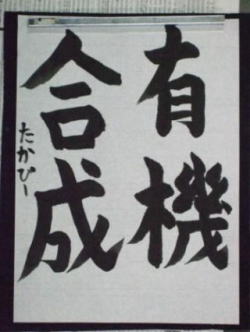 有機
合成
たかぴー